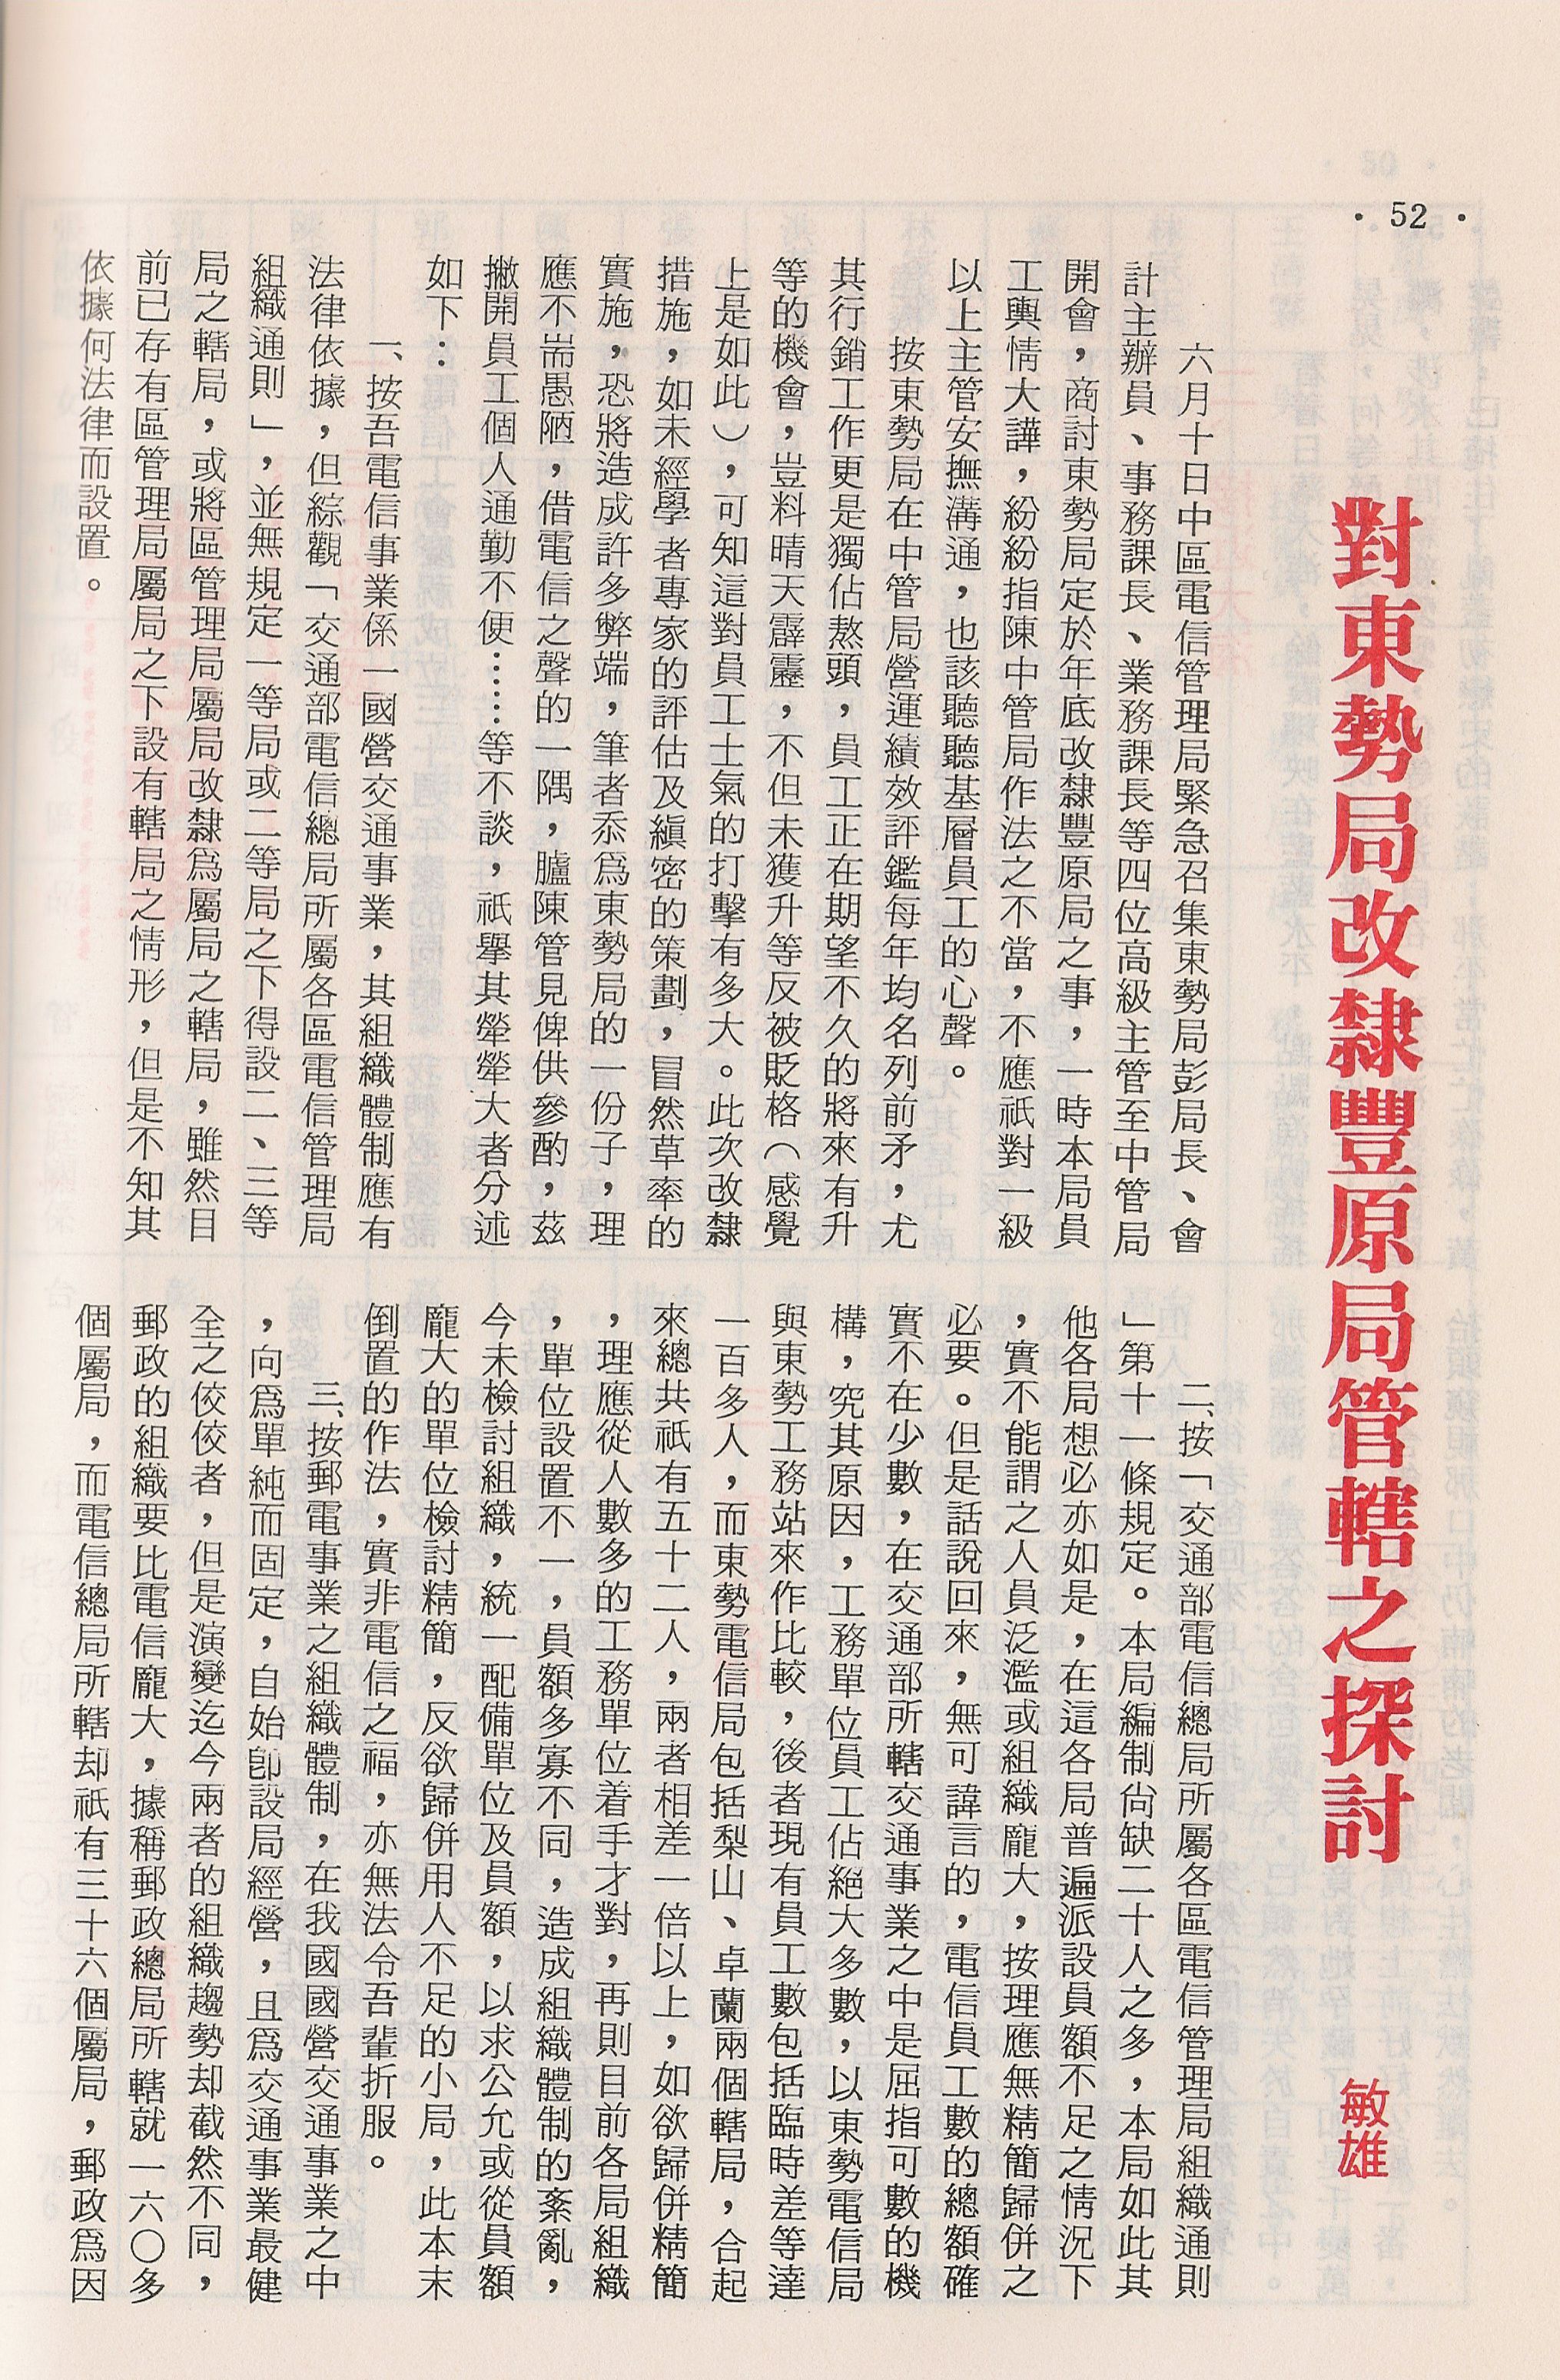 ・52・
對東勢局改隸豐原局管轄之探討
敏雄
六月十日中區電信管理局緊急召集東勢局彭局長、會
計主辦員、事務課長、業務課長等四位高級主管至中管局
開會，商討東勢局定於年底改隸豐原局之事，一時本局員
工輿情大譁，紛紛指陳中管局作法之不當，不應祇對一級
以上主管安撫溝通，也該聽聽基層員工的心聲。
按東勢局在中管局營運績效評鑑每年均名列前矛，尤
其行銷工作更是獨佔熬頭，員工正在期望不久的將來有升
等的機會，豈料晴天霹靂，不但未獲升等反被貶格（感覺
上是如此），可知這對員工士氣的打擊有多大。此次改隸
措施，如未經學者專家的評估及縝密的策劃，冒然草率的
實施，恐將造成許多弊端，筆者忝爲東勢局的一份子，理
應不耑愚陋，借電信之聲的一隅，臚陳管見俾供參酌，茲
撇開員工個人通勤不便……等不談，祇擧其犖犖大者分述
如下：
一、按吾電信事業係一國營交通事業，其組織體制應有
法律依據，但綜觀「交通部電信總局所屬各區電信管理局
組織通則」，並無規定一等局或二等局之下得設二、三等
局之轄局，或將區管理局屬局改隸爲屬局之轄局，雖然目
前已存有區管理局屬局之下設有轄局之情形，但是不知其
依據何法律而設置。
二、按「交通部電信總局所屬各區電信管理局組織通則
」第十一條規定。本局編制尙缺二十人之多，本局如此其
他各局想必亦如是，在這各局普遍派設員額不足之情況下
，實不能謂之人員泛濫或組織龐大，按理應無精簡歸併之
必要。但是話說回來，無可諱言的，電信員工數的總額確
實不在少數，在交通部所轄交通事業之中是屈指可數的機
構，究其原因，工務單位員工佔絕大多數，以東勢電信局
與東勢工務站來作比較，後者現有員工數包括臨時差等達
一百多人，而東勢電信局包括梨山、卓蘭兩個轄局，合起
來總共祇有五十二人，兩者相差一倍以上，如欲歸併精簡
，理應從人數多的工務單位着手才對，再則目前各局組織
，單位設置不一，員額多寡不同，造成組織體制的紊亂，
今未檢討組織，統一配備單位及員額，以求公允或從員額
龐大的單位檢討精簡，反欲歸併用人不足的小局，此本末
倒置的作法，實非電信之福，亦無法令吾輩折服。
三、按郵電事業之組織體制，在我國國營交通事業之中
，向爲單純而固定，自始卽設局經營，且爲交通事業最健
全之佼佼者，但是演變迄今兩者的組織趨勢却截然不同，
郵政的組織要比電信龐大，據稱郵政總局所轄就一六〇多
個屬局，而電信總局所轄却祇有三十六個屬局，郵政爲因